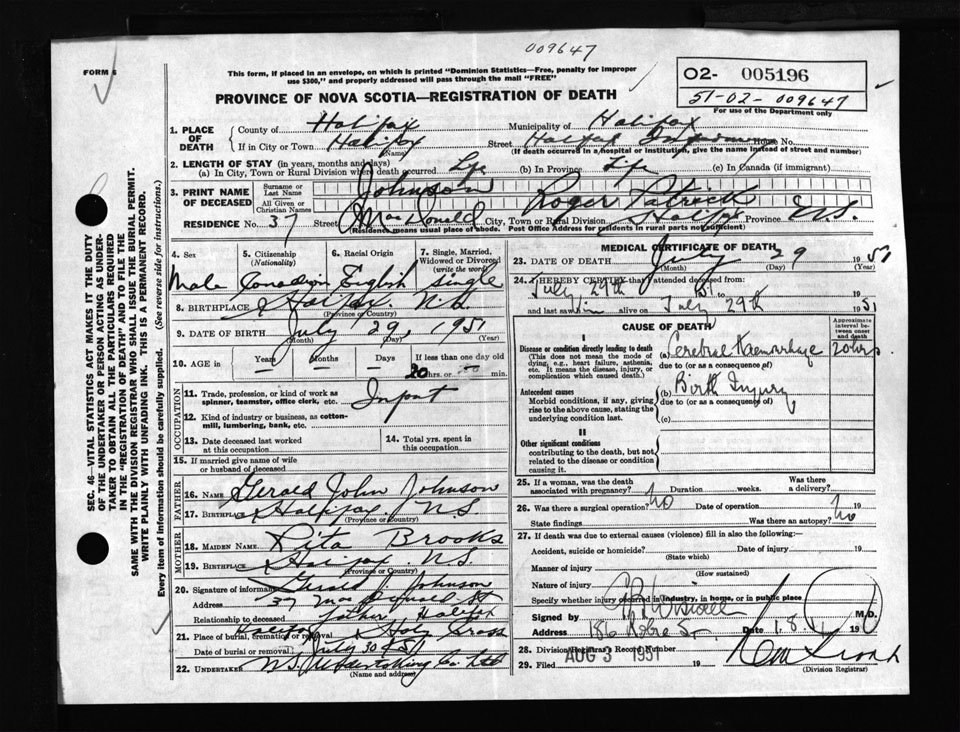 009647
FORM 6
This form, if placed in an envelope, on which is printed "Dominion Statistics—Free, penalty for improper
use $300," and properly addressed will pass through the mail "FREE"
O2- 005196
51-02-009647
For use of the Department only
PROVINCE OF NOVA SCOTIA—REGISTRATION OF DEATH
1. PLACE OF DEATH
County of Halifax Municipality of Halifax
If in City or Town Halifax Street Halifax House No.
(Name) (If death occurred in a hospital or institution, give the name instead of street and number)
2. LENGTH OF STAY (in years, months and days)
(a) In City, Town or Rural Division where death occurred Life (b) In Province Life (c) In Canada (if immigrant)
3. PRINT NAME OF DECEASED
Surname or Last Name Johnson
All Given or Christian Names Roger Patrick
RESIDENCE No. 37 Street MacDonald City, Town or Rural Division Halifax Province N.S.
(Residence means usual place of abode. Post Office Address for residents in rural parts not sufficient)
4. Sex 5. Citizenship (Nationality) 6. Racial Origin 7. Single, Married, Widowed or Divorced (write the word)
Male Canadian English Single
8. BIRTHPLACE Halifax. N.S.
(Province or Country)
9. DATE OF BIRTH July 29, 1951
(Month) (Day) (Year)
10. AGE in Years Months Days If less than one day old
20 hrs. min.
OCCUPATION
11. Trade, profession, or kind of work as
spinner, teamster, office clerk, etc.
12. Kind of industry or business, as cotton-
mill, lumbering, bank, etc.
13. Date deceased last worked
at this occupation
14. Total yrs. spent in
this occupation
15. If married give name of wife
or husband of deceased
FATHER
16. NAME Gerald John Johnson
17. BIRTHPLACE Halifax. N.S.
(Province or Country)
MOTHER
18. MAIDEN NAME Rita Brooks
19. BIRTHPLACE Halifax N.S.
(Province or Country)
20. Signature of informant Gerald J. Johnson
Address 37 MacDonald St
Relationship to deceased father Halifax
21. Place of burial, cremation or removal Holy Cross
Date of burial or removal July 30 51
22. UNDERTAKER N.S. Undertaking Co. Ltd
(Name and address)
MEDICAL CERTIFICATE OF DEATH
23. DATE OF DEATH July 29 1951
(Month) (Day) (Year)
24. I HEREBY CERTIFY that I attended deceased from:
July 29th
and last saw him alive on July 29th 1951
CAUSE OF DEATH
Approximate interval between onset and death
I
Disease or condition directly leading to death
(This does not mean the mode of
dying, e.g., heart failure, asthenia,
etc. It means the disease, injury, or
complication which caused death.)
(a) Cerebral Haemorrhage 20 hrs
due to (or as a consequence of)
Antecedent causes
Morbid conditions, if any, giving
rise to the above cause, stating the
underlying condition last.
(b) Birth Injury
due to (or as a consequence of)
(c)
II
Other significant conditions
contributing to the death, but not
related to the disease or condition
causing it.
25. If a woman, was the death
associated with pregnancy? Duration weeks. Was there a delivery?
26. Was there a surgical operation? no Date of operation 19
State findings Was there an autopsy? no
27. If death was due to external causes (violence) fill in also the following:—
Accident, suicide or homicide? Date of injury 19
(State which)
Manner of injury
(How sustained)
Nature of injury
Specify whether injury occurred in industry, in home, or in public place
Signed by M.D.
Address 186 Date 1.8. 19
28. Division Registrar's Record Number
AUG 3 1951
29. Filed 19
(Division Registrar)
SEC. 46—VITAL STATISTICS ACT MAKES IT THE DUTY
OF THE UNDERTAKER OR PERSON ACTING AS UNDER-
TAKER TO OBTAIN ALL THE PARTICULARS REQUIRED
IN THE "REGISTRATION OF DEATH" AND TO FILE THE
SAME WITH THE DIVISION REGISTRAR WHO SHALL ISSUE THE BURIAL PERMIT.
WRITE PLAINLY WITH UNFADING INK. THIS IS A PERMANENT RECORD.
Every item of Information should be carefully supplied. (See reverse side for instructions.)